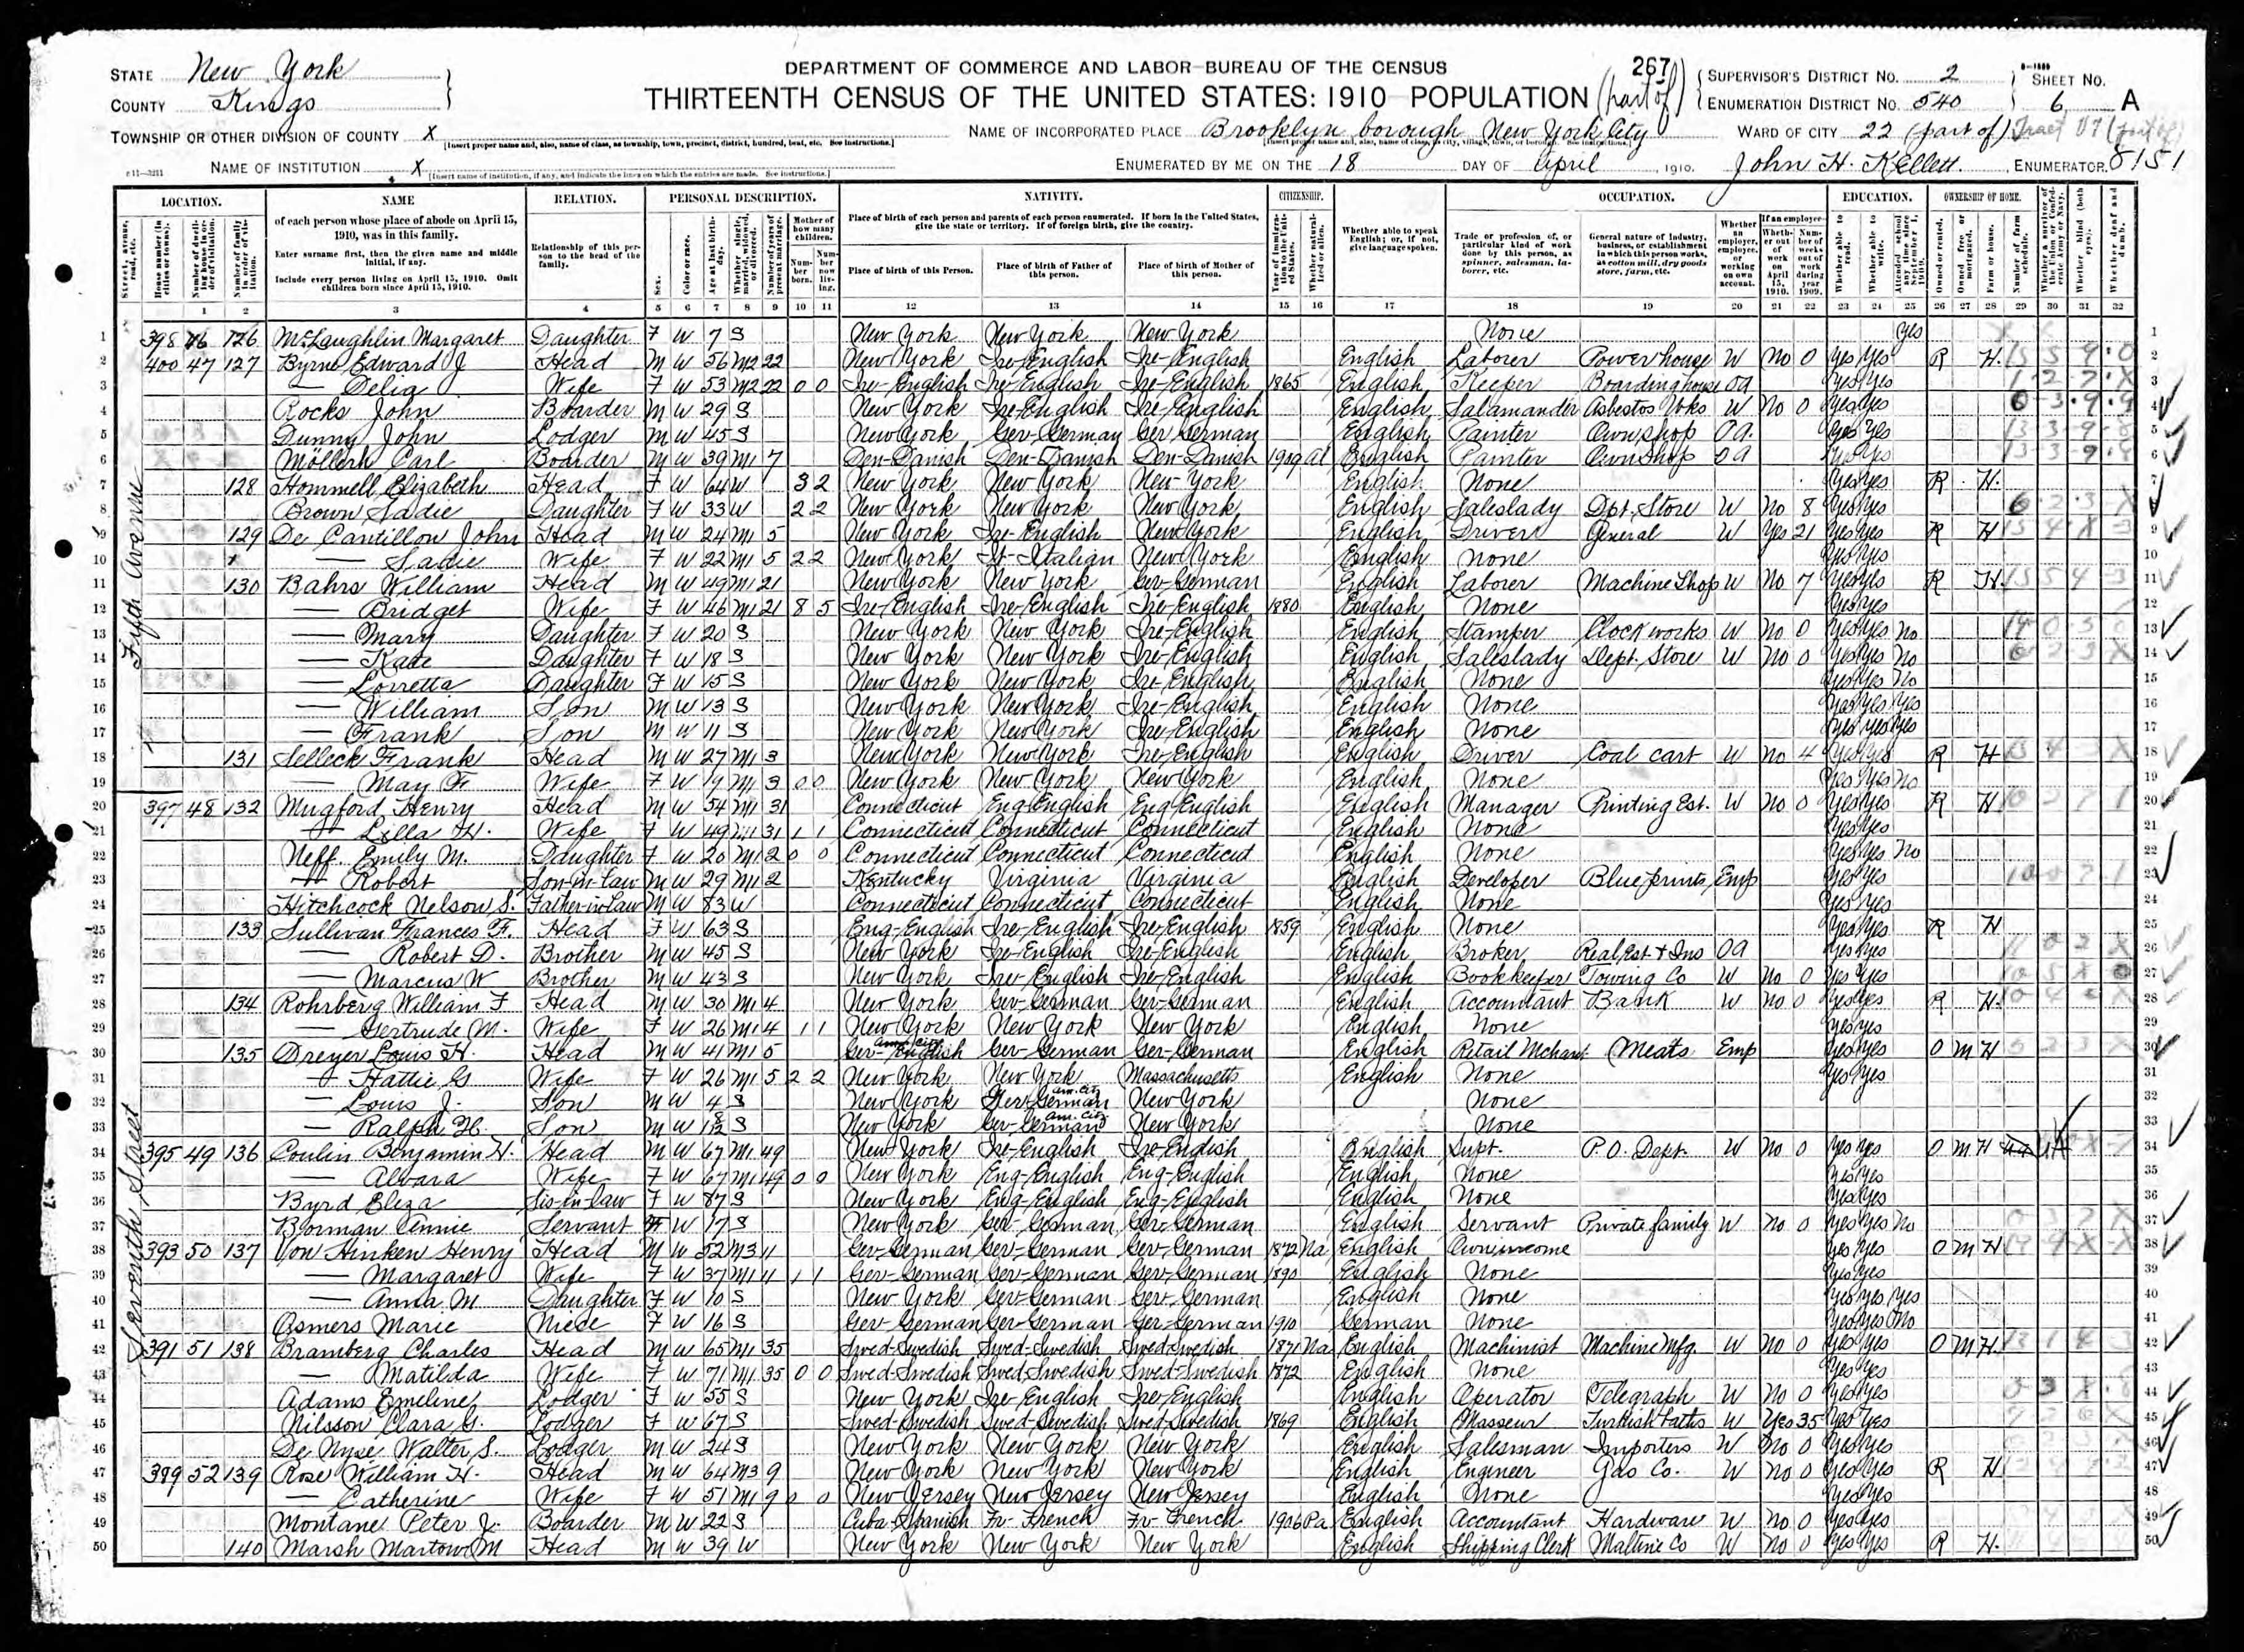 STATE New York
COUNTY Kings
DEPARTMENT OF COMMERCE AND LABOR—BUREAU OF THE CENSUS
THIRTEENTH CENSUS OF THE UNITED STATES: 1910 POPULATION
267 (part of)
SUPERVISOR'S DISTRICT No. 2
ENUMERATION DISTRICT No. 540
SHEET No. 6 A
TOWNSHIP OR OTHER DIVISION OF COUNTY X
NAME OF INCORPORATED PLACE Brooklyn borough New York City
WARD OF CITY 22 (part of)
NAME OF INSTITUTION X
ENUMERATED BY ME ON THE 18 DAY OF April, 1910. John H. Kellett, ENUMERATOR. 8151
LOCATION. NAME RELATION. PERSONAL DESCRIPTION. NATIVITY. CITIZENSHIP. OCCUPATION. EDUCATION. OWNERSHIP OF HOME.
of each person whose place of abode on April 15, 1910, was in this family.
Enter surname first, then the given name and middle initial, if any.
Include every person living on April 15, 1910. Omit children born since April 15, 1910.
Relationship of this person to the head of the family.
Place of birth of each person and parents of each person enumerated. If born in the United States, give the state or territory. If of foreign birth, give the country.
Place of birth of this Person. Place of birth of Father of this person. Place of birth of Mother of this person.
Whether able to speak English; or, if not, give language spoken.
1 2 3 4 5 6 7 8 9 10 11 12 13 14 15 16 17 18 19 20 21 22 23 24 25 26 27 28 29 30 31 32
Fifth Avenue
1 398 46 126 McLaughlin Margaret Daughter F W 7 S New York New York New York None Yes
2 400 47 127 Byrne Edward J Head M W 56 M2 22 New York Ire-English Ire-English English Laborer Power house W No 0 Yes Yes R H
3 — Delia Wife F W 53 M2 22 0 0 Ire-English Ire-English Ire-English 1865 English Keeper Boarding house OA Yes Yes
4 Rocks John Boarder M W 29 S New York Ire-English Ire-English English Salamander Asbestos Wks W No 0 Yes Yes
5 Dunny John Lodger M W 45 S New York Ger-German Ger German English Painter Own shop OA Yes Yes
6 Möllern Carl Boarder M W 39 M1 7 Den-Danish Den-Danish Den-Danish 1909 Al English Painter Own Shop OA Yes Yes
7 128 Hommell Elizabeth Head F W 64 W 3 2 New York New York New York English None Yes Yes R H
8 Brown Sadie Daughter F W 33 W 2 2 New York New York New York English Saleslady Dpt. Store W No 8 Yes Yes
9 129 De Cantillon John Head M W 24 M1 5 New York Ire-English New York English Driver General W Yes 21 Yes Yes R H
10 — Sadie Wife F W 22 M1 5 2 2 New York It-Italian New York English None Yes Yes
11 130 Bahrs William Head M W 49 M1 21 New York New York Ger-German English Laborer Machine Shop W No 7 Yes Yes R H
12 — Bridget Wife F W 46 M1 21 8 5 Ire-English Ire-English Ire-English 1880 English None Yes Yes
13 — Mary Daughter F W 20 S New York New York Ire-English English Stamper Clock works W No 0 Yes Yes No
14 — Kate Daughter F W 18 S New York New York Ire-English English Saleslady Dept. Store W No 0 Yes Yes No
15 — Lorretta Daughter F W 15 S New York New York Ire-English English None Yes Yes No
16 — William Son M W 13 S New York New York Ire-English English None Yes Yes Yes
17 — Frank Son M W 11 S New York New York Ire-English English None Yes Yes Yes
18 131 Selleck Frank Head M W 27 M1 3 New York New York Ire-English English Driver Coal cart W No 4 Yes Yes R H
19 — May F Wife F W 19 M1 3 0 0 New York New York New York English None Yes Yes No
Seventh Street
20 397 48 132 Mugford Henry Head M W 54 M1 31 Connecticut Eng English Eng-English English Manager Printing Est. W No 0 Yes Yes R H
21 — Lilla H. Wife F W 49 M1 31 1 1 Connecticut Connecticut Connecticut English None Yes Yes
22 Neff Emily M. Daughter F W 20 M1 2 0 0 Connecticut Connecticut Connecticut English None Yes Yes No
23 — Robert Son-in-law M W 29 M1 2 Kentucky Virginia Virginia English Developer Blue prints Emp Yes Yes
24 Hitchcock Nelson S. Father-in-law M W 83 W Connecticut Connecticut Connecticut English None Yes Yes
25 133 Sullivan Frances F. Head F W 63 S Eng-English Ire-English Ire-English 1859 English None Yes Yes R H
26 — Robert D. Brother M W 45 S New York Ire-English Ire-English English Broker Real Est + Ins OA Yes Yes
27 — Marcus W Brother M W 43 S New York Ire-English Ire-English English Bookkeeper Towing Co W No 0 Yes Yes
28 134 Rohrberg William F Head M W 30 M1 4 New York Ger-German Ger-German English Accountant Bank W No 0 Yes Yes R H
29 — Gertrude M. Wife F W 26 M1 4 1 1 New York New York New York English None Yes Yes
30 135 Dreyer Louis H. Head M W 41 M1 5 Ger-English Am. City Ger-German Ger-German English Retail Mchant Meats Emp Yes Yes O M H
31 — Hattie G Wife F W 26 M1 5 2 2 New York New York Massachusetts English None Yes Yes
32 — Louis J. Son M W 4 S New York Ger-German Am. City New York None
33 — Ralph H. Son M W 8/12 S New York Ger-German Am. City New York None
34 395 49 136 Conlin Benjamin H. Head M W 67 M1 49 New York Ire-English Ire-English English Supt. P.O. Dept. W No 0 Yes Yes O M H
35 — Alvara Wife F W 67 M1 49 0 0 New York Eng-English Eng-English English None Yes Yes
36 Byrd Eliza Sis-in-law F W 87 S New York Eng-English Eng-English English None Yes Yes
37 Borman Annie Servant F W 17 S New York Ger-German Ger-German English Servant Private family W No 0 Yes Yes No
38 393 50 137 Von Hinken Henry Head M W 52 M3 11 Ger-German Ger-German Ger-German 1872 Na English Own income Yes Yes O M H
39 — Margaret Wife F W 37 M1 11 1 1 Ger-German Ger-German Ger-German 1890 English None Yes Yes
40 — Anna M Daughter F W 10 S New York Ger-German Ger-German English None Yes Yes Yes
41 Asmers Marie Niece F W 16 S Ger-German Ger-German Ger-German 1910 German None Yes Yes No
42 391 51 138 Bramberg Charles Head M W 65 M1 35 Swed-Swedish Swed-Swedish Swed-Swedish 1871 Na English Machinist Machine Mfg. W No 0 Yes Yes O M H
43 — Matilda Wife F W 71 M1 35 0 0 Swed-Swedish Swed-Swedish Swed-Swedish 1872 English None Yes Yes
44 Adams Emeline Lodger F W 55 S New York Ire-English Ire-English English Operator Telegraph W No 0 Yes Yes
45 Nilsson Clara G. Lodger F W 67 S Swed-Swedish Swed-Swedish Swed-Swedish 1869 English Masseur Turkish baths W Yes 35 Yes Yes
46 De Nyse Walter S. Lodger M W 24 S New York New York New York English Salesman Importers W No 0 Yes Yes
47 389 52 139 Rose William H. Head M W 64 M3 9 New York New York New York English Engineer Gas Co. W No 0 Yes Yes R H
48 — Catherine Wife F W 51 M1 9 0 0 New Jersey New Jersey New Jersey English None Yes Yes
49 Montane Peter J. Boarder M W 22 S Cuba-Spanish Fr-French Fr-French 1906 Pa English Accountant Hardware W No 0 Yes Yes
50 140 Marsh Martow M Head M W 39 W New York New York New York English Shipping Clerk Maltine Co W No 0 Yes Yes R H